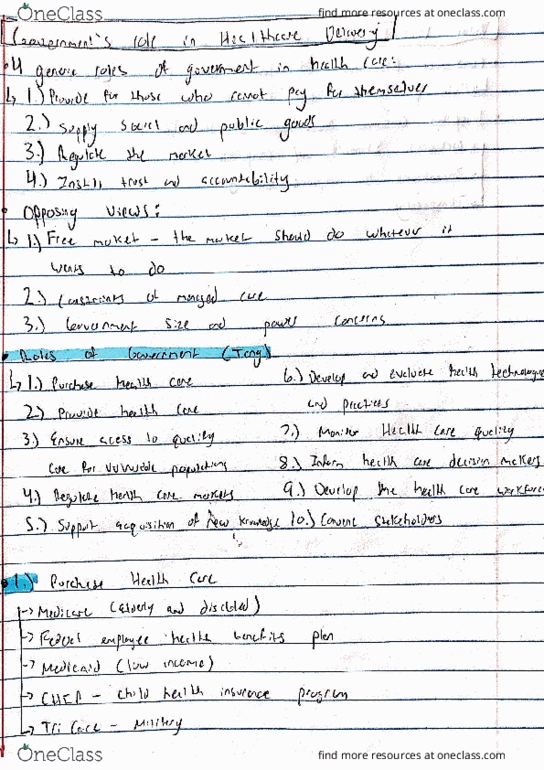 OneClass find more resources at oneclass.com
Government's role in Healthcare Delivery
• 4 generic roles of government in health care:
↳ 1.) Provide for those who cannot pay for themselves
2.) Supply social and public goods
3.) Regulate the market
4.) Instill trust and accountability
• Opposing views:
↳ 1.) Free market - the market should do whatever it
wants to do
2.) Constraints of managed care
3.) Government size and power concerns
• Roles of Government (Tang)
↳ 1.) Purchase health care
2.) Provide health care
3.) Ensure access to quality
care for vulnerable populations
4.) Regulate health care markets
5.) Support acquisition of new knowledge
6.) Develop and evaluate health technologies
and practices
7.) Monitor Health care quality
8.) Inform health care decision makers
9.) Develop the health care workforce
10.) Convene stakeholders
• 1.) Purchase Health Care
-> Medicare (elderly and disabled)
-> Federal employee health benefits plan
-> Medicaid (low income)
-> CHIP - child health insurance program
-> Tri Care - Military
OneClass find more resources at oneclass.com